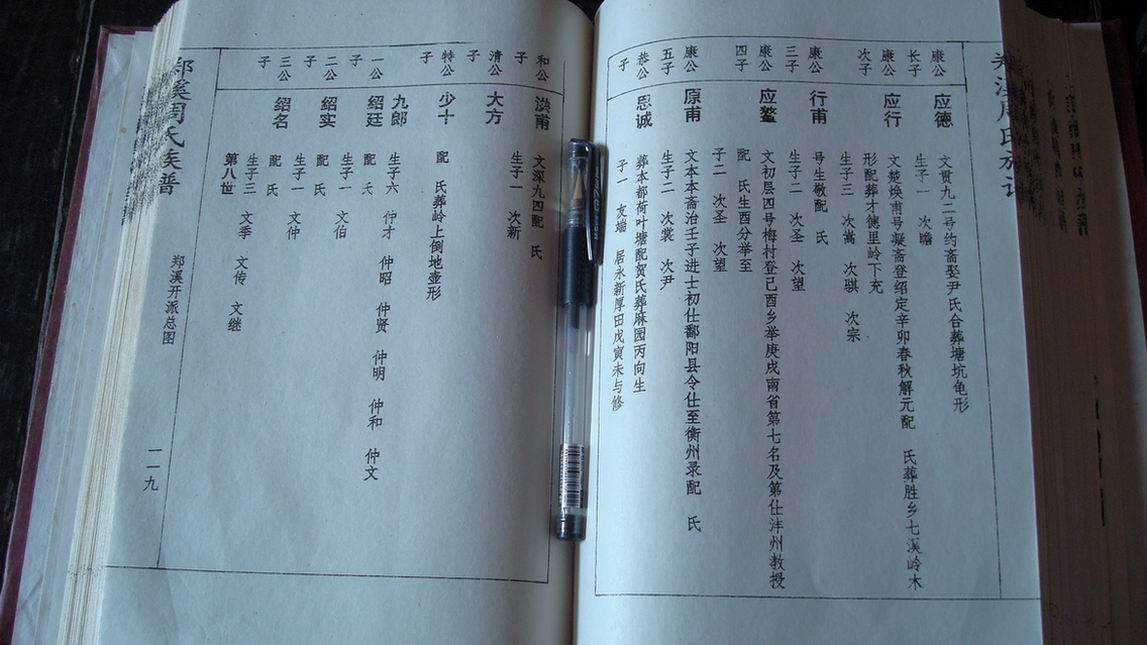 康公
长子
应德
文贯九二号约斋娶尹氏合葬塘坑龟形
生子一 次瞻
康公
次子
应行
文楚焕甫号凝斋登绍定辛卯春秋解元配 氏葬胜乡七溪岭木
形配葬才德里岭下充
生子三 次嵩 次骐 次宗
康公
三子
行甫
号生敬配 氏
生子二 次圣 次望
康公
四子
应鳌
文初层四号梅村登己酉乡举庚戌南省第七名及第仕沣州教授
配 氏生酉分举至
子二 次圣 次望
康公
五子
原甫
文本本斋治壬子进士初仕鄱阳县令仕至衡州录配 氏
生子二 次裳 次尹
恭公
子
思诚
葬本都荷叶塘配贺氏葬麻园丙向生
子一 友端 居永新厚田戊寅未与修
和公
子
淡甫
文深九四配 氏
生子一 次新
清公
子
大方
特公
子
少十
配 氏葬岭上倒地壶形
九郎
一公
子
绍廷
生子六 仲才 仲昭 仲贤 仲明 仲和 仲文
配 氏
二公
子
绍实
生子一 文伯
配 氏
三公
子
绍名
生子一 文仲
配 氏
生子三 文季 文传 文继
第八世
郑溪周氏族谱
郑溪开派总图
一一九